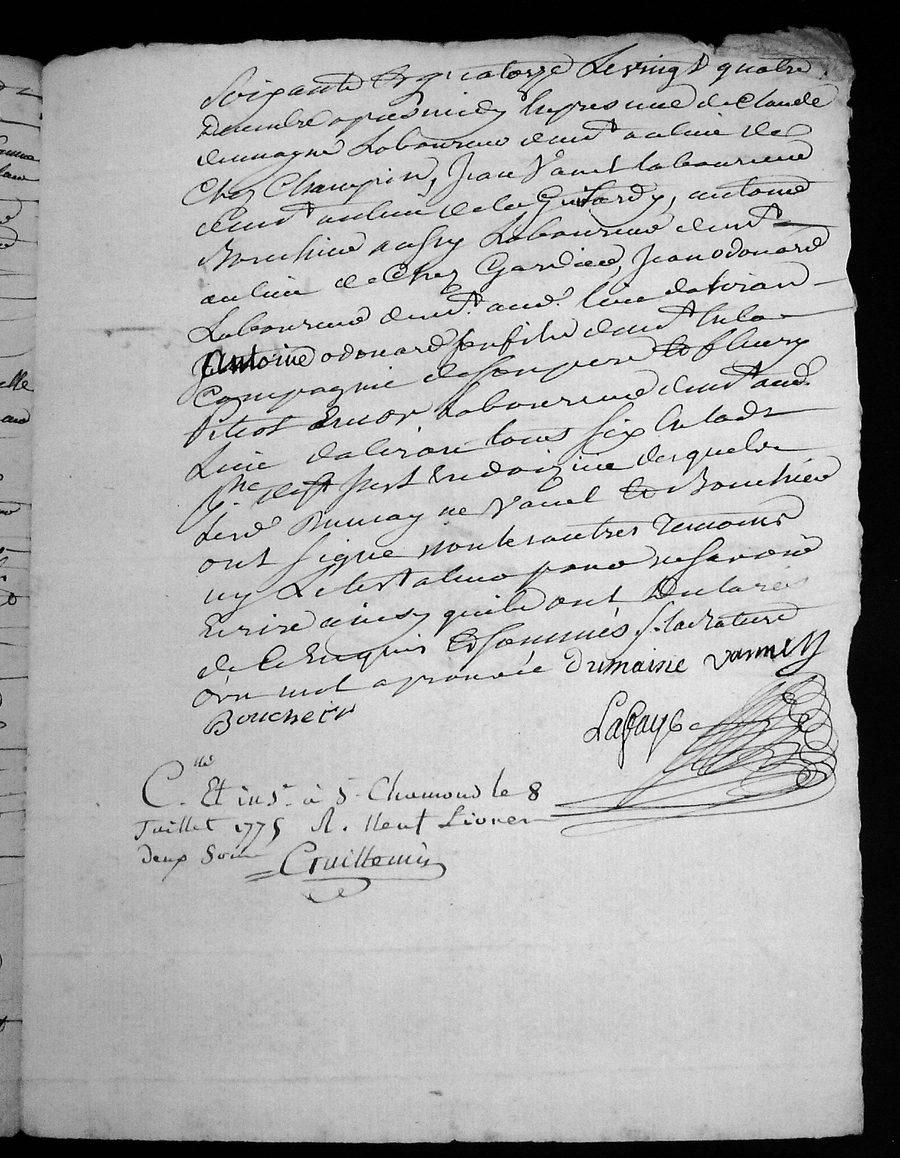 Soixante et quatorze le vingt quatre
Decembre apres midy en presence de Claude
dumagne Laboureur demt au lieu de
Chez Champrin, Jean Vanel laboureur
demt au lieu de la Guitardy, antoine
Bouchier aussy Laboureur demt
au lieu de Chez Gardier, Jean odouard
Laboureur demt. aud. lieu de liron
Antoine odouard son fils demt en la
Compagnie de son pere et fleury
Pitiot Laboureur demt aud.
Lieu de liron tous six en lad.
psse de st just en doizieu desquels
Lesd. Dumagne Vanel et Bouchier
ont signé non les autres temoins
ny Le testateur pour ne savoir
Ecrire ainsy quils ont Declaré
de ce Enquis et sommés /. la rature
d'un mot aprouvée Dumaine vannel
Boucheir
Lafaye
C. lle Et ins. à St. Chamond le 8
Juillet 1775 R. Neuf Livres
deux Sous Guillemin